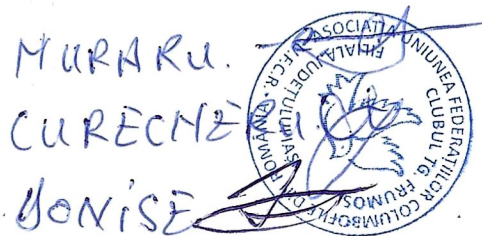 MURARU.
CURECHERIU
DONISE
ASOCIAȚIA UNIUNEA FEDERAȚIILOR COLUMBOFILE DIN ROMANIA - U.F.C.R.
FILIALA JUDEȚULUI IAȘI
CLUBUL TG. FRUMOS